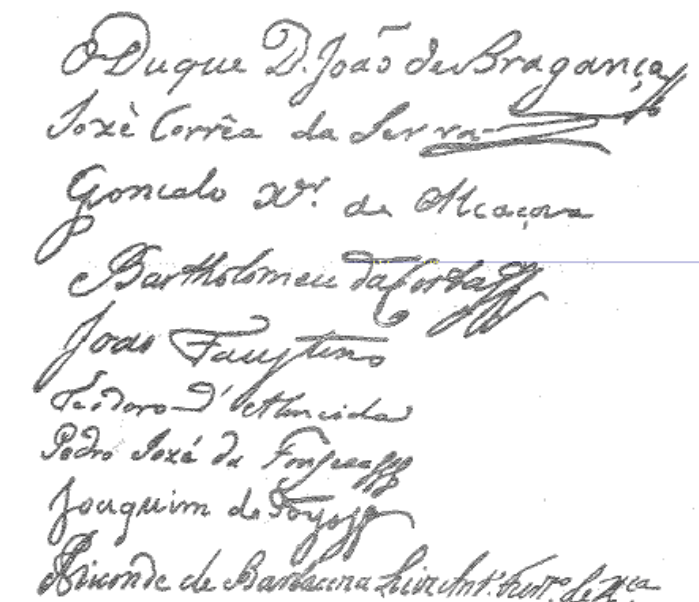 O Duque D. João de Bragança
Jozè Corrêa da Serra
Goncalo Xer. de Alcaçova
Bartholomeu da Costa
Joaõ Faustino
Teodoro D'Almeida
Pedro Jozé da Fonseca
Joaquim de Foyos
Visconde de Barbacena Luiz Ant.º Furt.º de